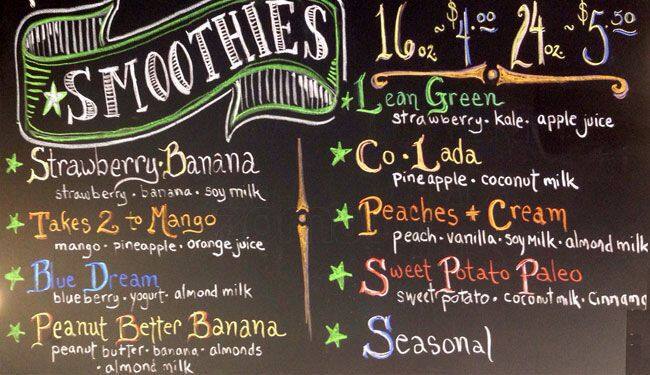 SMOOTHIES
16 oz ~ $4.00 24 oz ~ $5.50
Strawberry·Banana
strawberry · banana · soy milk
Takes 2 to Mango
mango · pineapple · orange juice
Blue Dream
blueberry · yogurt · almond milk
Peanut Better Banana
peanut butter · banana · almonds
· almond milk
Lean Green
strawberry · kale · apple juice
Co·Lada
pineapple · coconut milk
Peaches + Cream
peach · vanilla · soy milk · almond milk
Sweet Potato Paleo
sweet potato · coconut milk · cinnamo
Seasonal